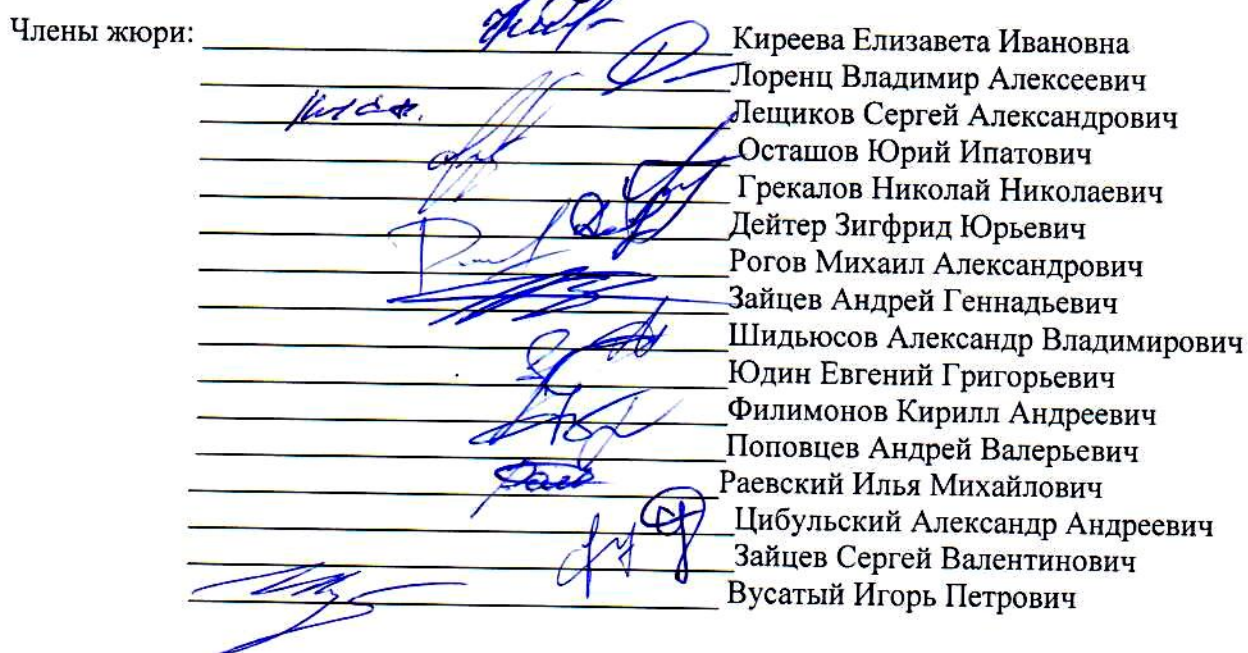 Члены жюри: Киреева Елизавета Ивановна
Лоренц Владимир Алексеевич
Лещиков Сергей Александрович
Осташов Юрий Ипатович
Грекалов Николай Николаевич
Дейтер Зигфрид Юрьевич
Рогов Михаил Александрович
Зайцев Андрей Геннадьевич
Шидьюсов Александр Владимирович
Юдин Евгений Григорьевич
Филимонов Кирилл Андреевич
Поповцев Андрей Валерьевич
Раевский Илья Михайлович
Цибульский Александр Андреевич
Зайцев Сергей Валентинович
Вусатый Игорь Петрович